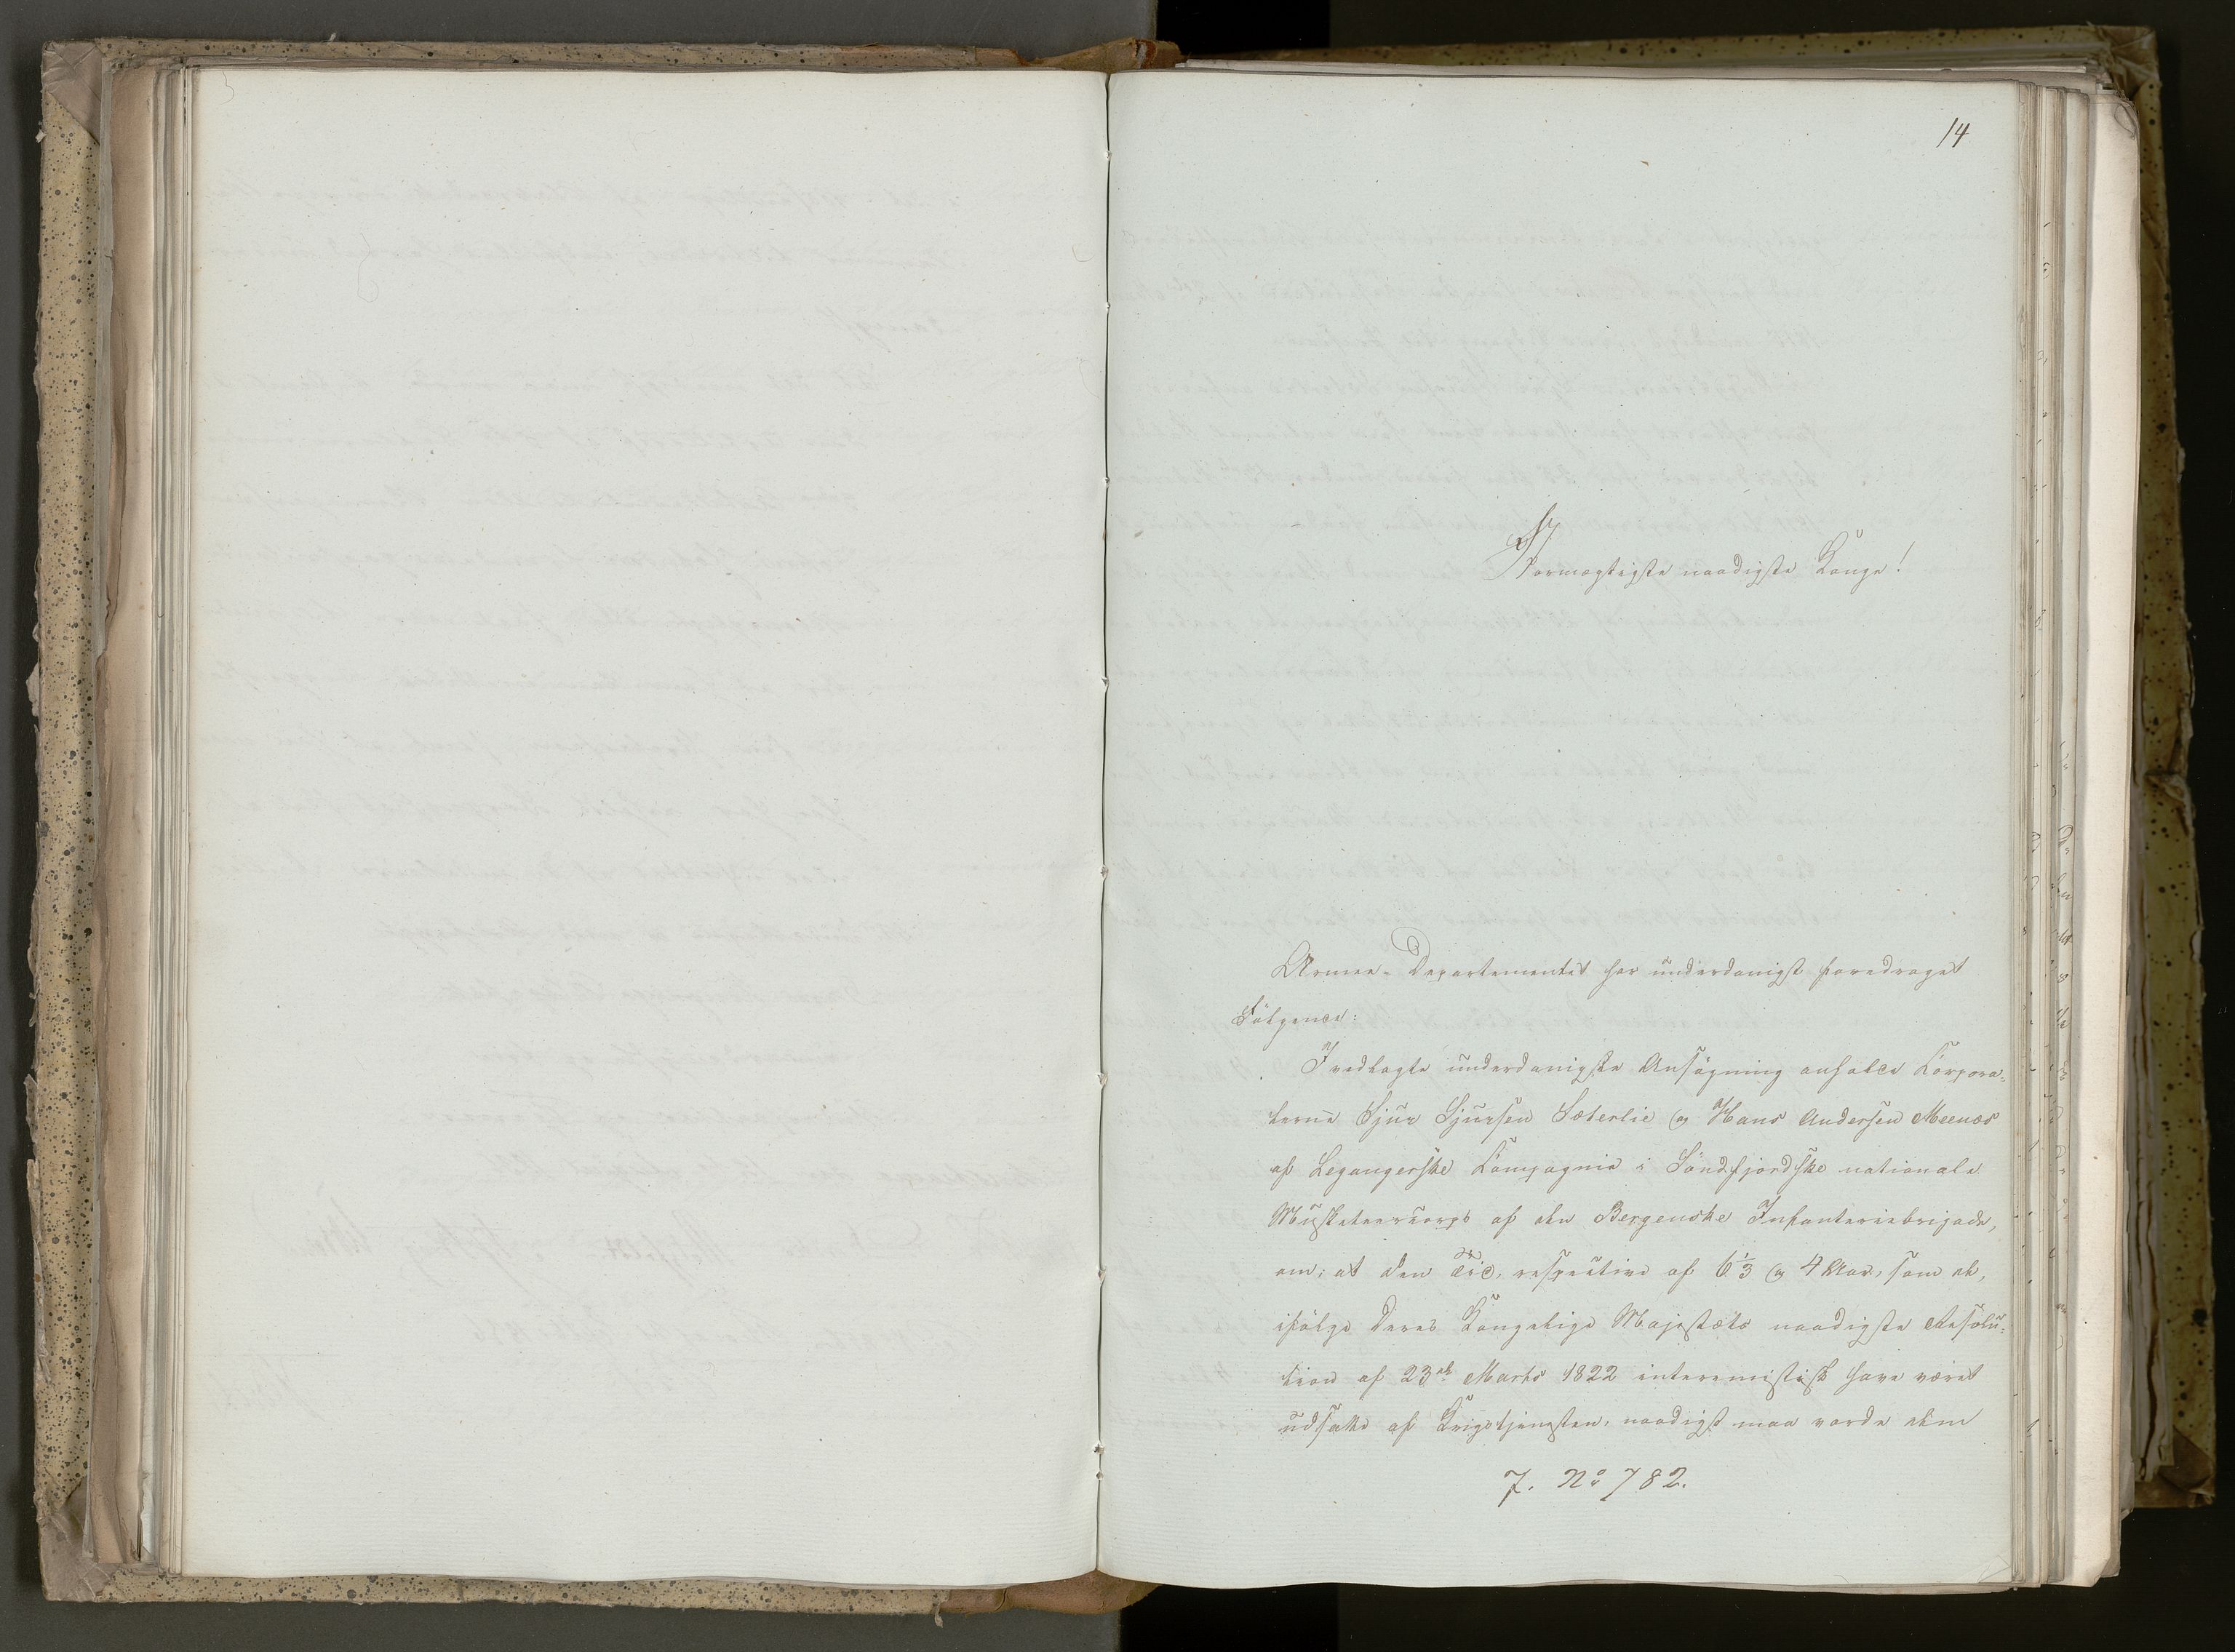 14
Stormægtigste naadigste Konge!
Armee-Departementet har underdanigst foredraget
Følgende:
I vedlagte underdanigste Ansøgning anholde Corpora-
lerne Sjur Sjursen Sæterlie og Hans Andersen Meenæs
af Legangerske Compagnie i Söndfjordske nationale
Musketeercorps af den Bergenske Infanteriebrigade,
om, at den Tid, respective af 6 1/3 og 4 Aar, som de,
ifølge Deres Kongelige Majestæts naadigste Resolu-
tion af 23de Marts 1822 interemistisk have været
udsatte af Krigstjenesten, naadigst maa vorde dem
7. No 782.